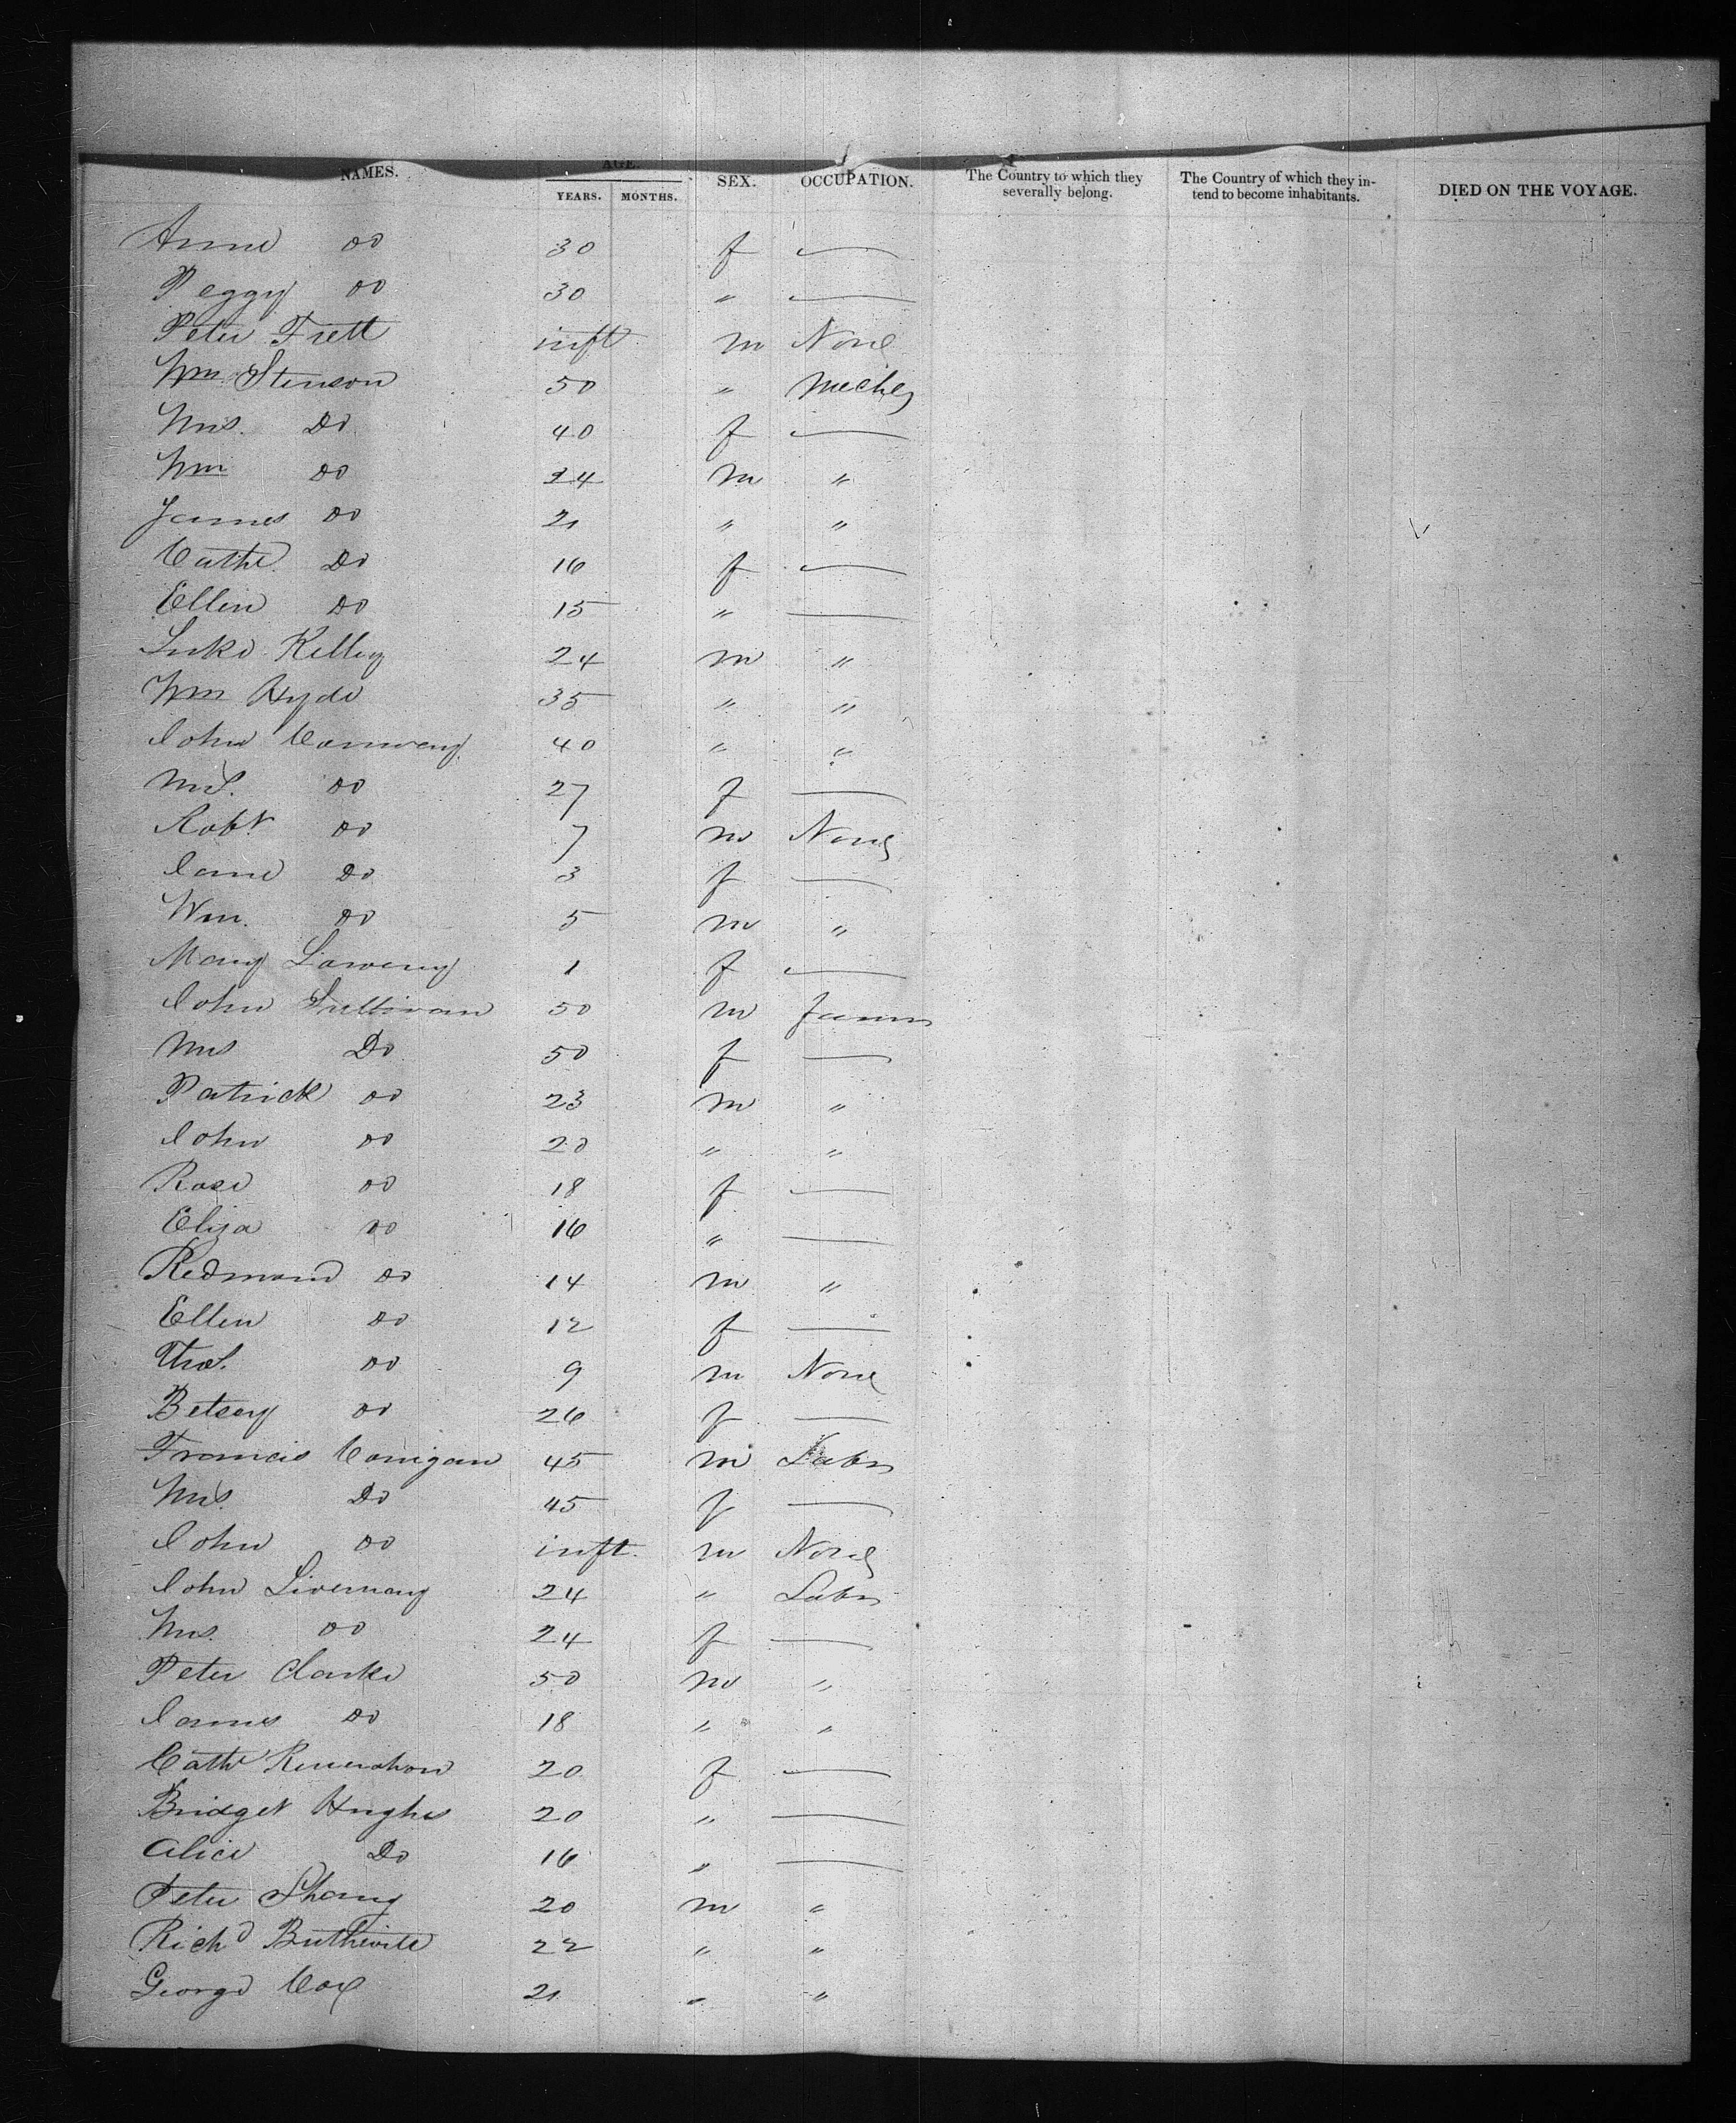 NAMES. AGE. SEX. OCCUPATION. The Country to which they severally belong. The Country of which they intend to become inhabitants. DIED ON THE VOYAGE.
YEARS. MONTHS.
Anne Do 30 f —
Peggy Do 30 " —
Peter Trett inft m None
Wm Stenson 50 " Mechc
Mrs. Do 40 f —
Wm Do 24 m "
James Do 21 " "
Cathe. Do 16 f —
Ellen Do 15 " —
Luke Kelley 24 m "
Wm Hyde 35 " "
John Conway 40 " "
Mrs. Do 27 f —
Robt Do 7 m None
Jane Do 3 f —
Wm. Do 5 m "
Mary 1 f —
John Sullivan 50 m Farmr
Mrs Do 50 f —
Patrick Do 23 m "
John Do 20 " "
Rose Do 18 f —
Eliza Do 16 " —
Redmond Do 14 m "
Ellen Do 12 f —
Thos. Do 9 m None
Betsey Do 26 f —
Francis Corrigan 45 m Labr
Mrs. Do 45 f —
John Do inft. m None
John 24 " Labr
Mrs. Do 24 f —
Peter Clarke 50 m "
James Do 18 " "
Cathe 20 f —
Bridget Hughes 20 " —
Alice Do 16 " —
Peter 20 m "
Richd 22 " "
George Cox 21 " "